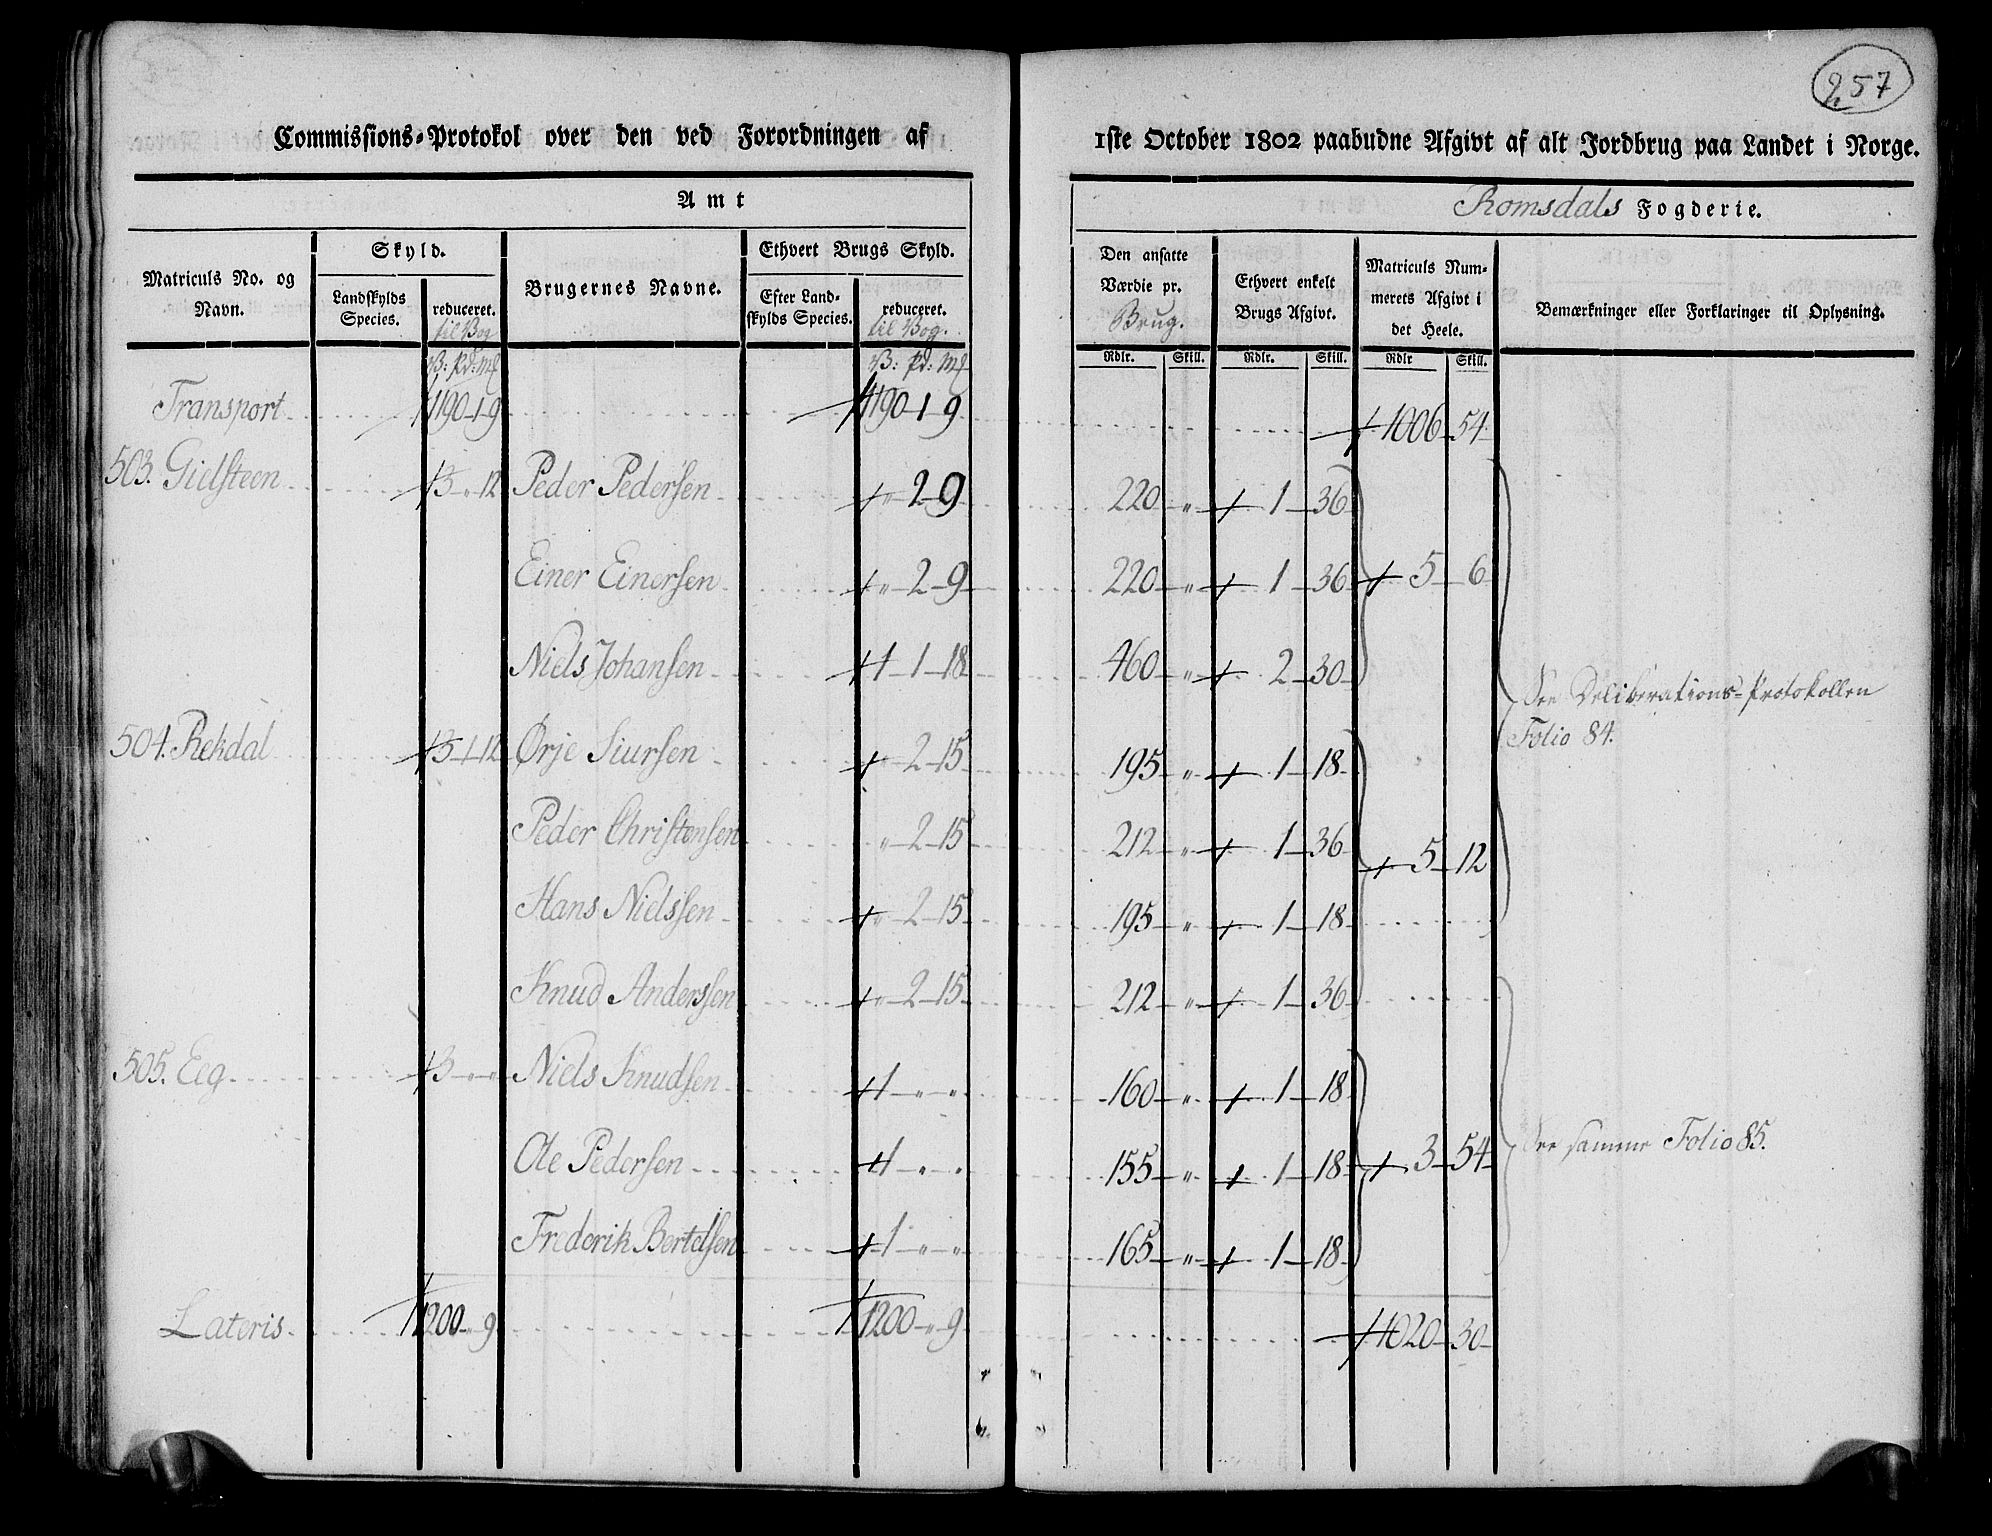 257
Commissions-Protokol over den ved Forordningen af 1ste October 1802 paabudne Afgivt af alt Jordbrug paa Landet i Norge.
Amt Romsdals Fogderie.
Matriculs No. og Navn.
Skyld.
Landskylds Species.
reduceret. til Vog
Brugernes Navne.
Ethvert Brugs Skyld.
Efter Landskylds Species.
reduceret. til Vog.
Den ansatte Værdie pr. Brug.
Ethvert enkelt Brugs Afgivt.
Matriculs Nummerets Afgivt i det Heele.
Bemærkninger eller Forklaringer til Oplysning.
V: Pd: Mk V: Pd: Mk Rdlr. Skill. Rdlr. Skill. Rdlr Skill.
Transport 1190-1-9 1190-1-9 1006 54
503. Gielsteen 3 " 12 Peder Pedersen " 2-9 220 " 1 36
Einer Einersen " 2-9 220 " 1 36 5 6
Niels Johansen 1-1-18 460 " 2 30
See Deliberations-Protokollen
Folio 84.
504. Rekdal 3-1-12 Ørje Siursen " 2-15 195 " 1 18
Peder Christensen " 2-15 212 " 1 36 5 12
Hans Nielssen " 2-15 195 " 1 18
Knud Anderssen " 2-15 212 " 1 36
505. Eeg 3 " " Niels Knudsen 1 " " 160 " 1 18
Ole Pedersen 1 " " 155 " 1 18 3 54 See samme Folio 85.
Frederik Bertelsen 1 " " 165 " 1 18
Lateris 1200 " 9 1200 " 9 1020 30